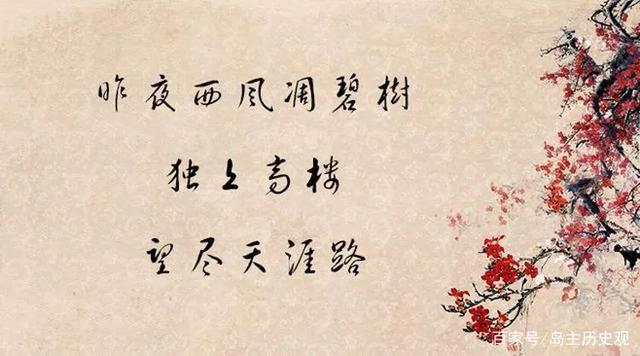 昨夜西风凋碧樹
独上高楼
望尽天涯路
百家号/岛主历史观